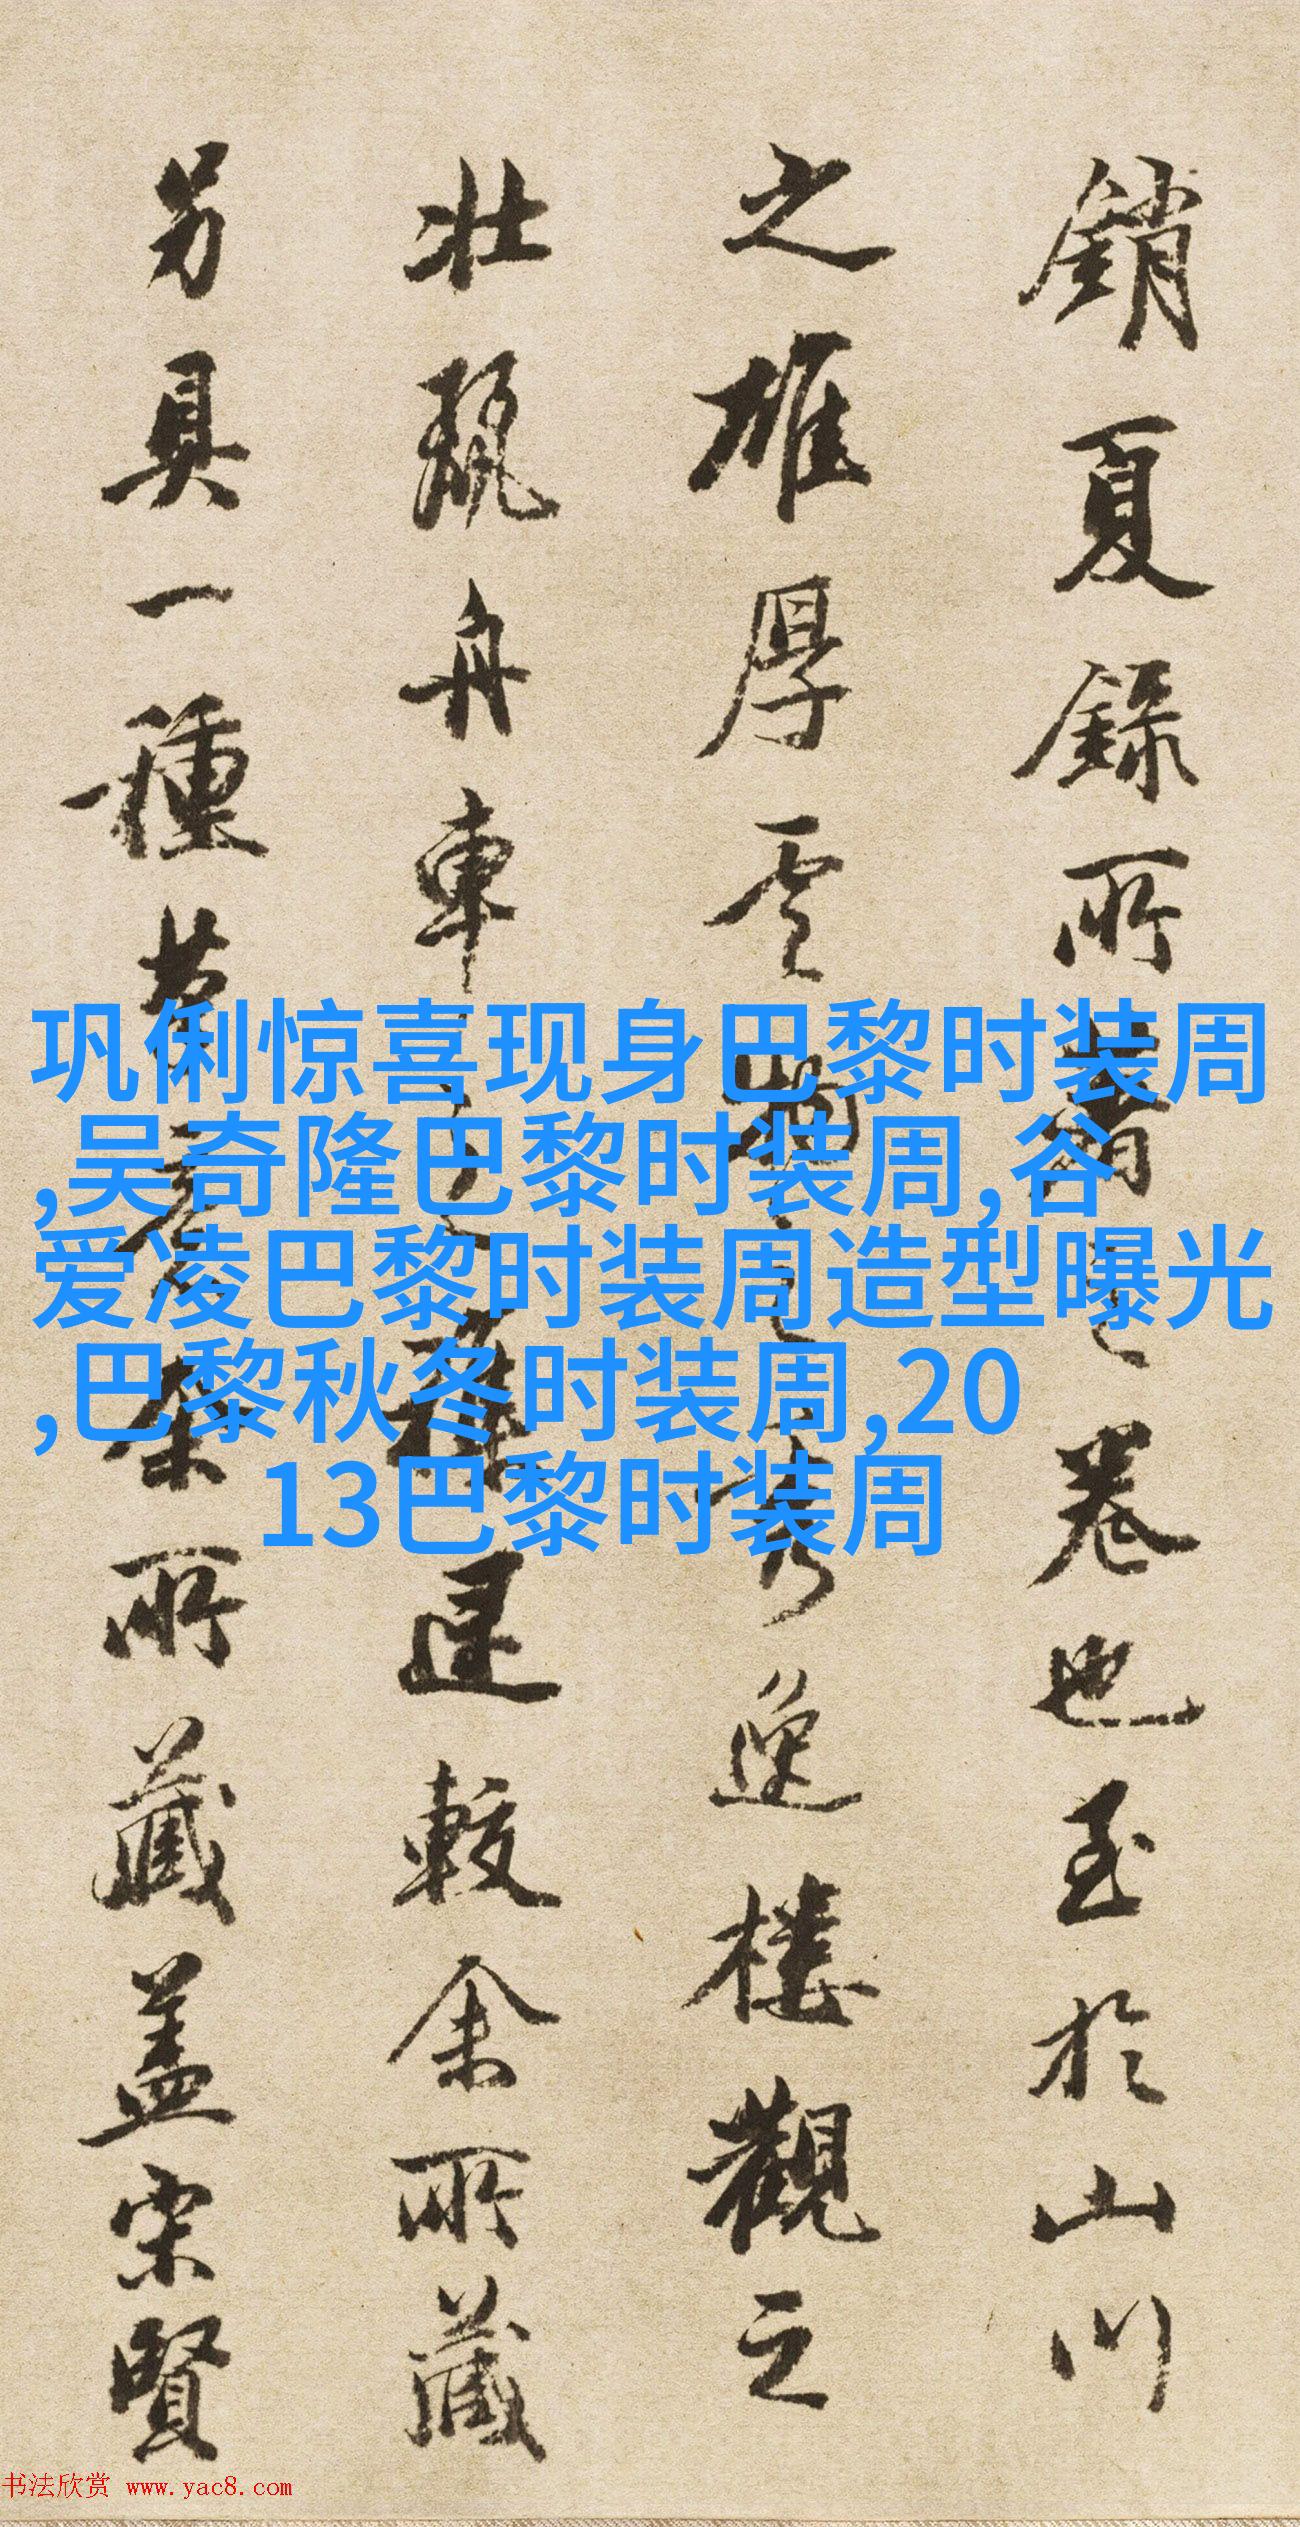 銷夏録所
卷也至於山川
之雄厚雲
逸樓觀之
壯麗舟車
遲較余所藏
另具一種
所藏蓋宋賢
巩俐惊喜现身巴黎时装周
,吴奇隆巴黎时装周,谷
爱凌巴黎时装周造型曝光
,巴黎秋冬时装周,20
13巴黎时装周
书法欣赏 www.yac8.com